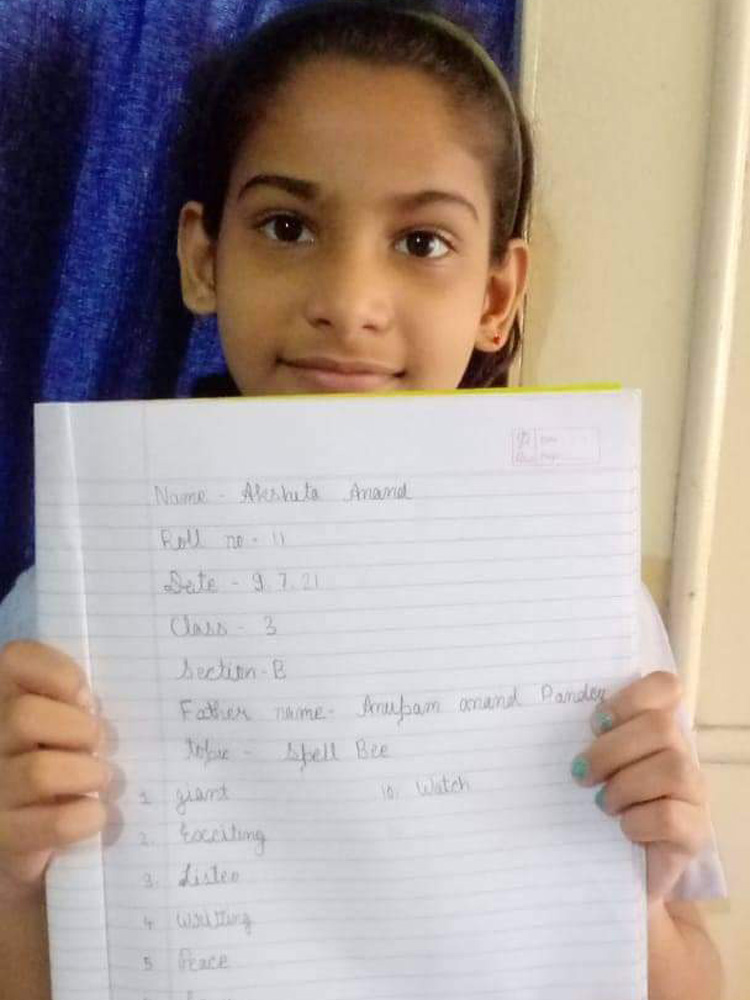 Name - Akshita Anand
Roll no - 11
Date - 9.7.21
Class - 3
Section - B
Father name - Anupam anand Pandey
Topic - Spell Bee
1. giant 10. Watch
2. Exciting
3. Listen
4 writting
5 Peace